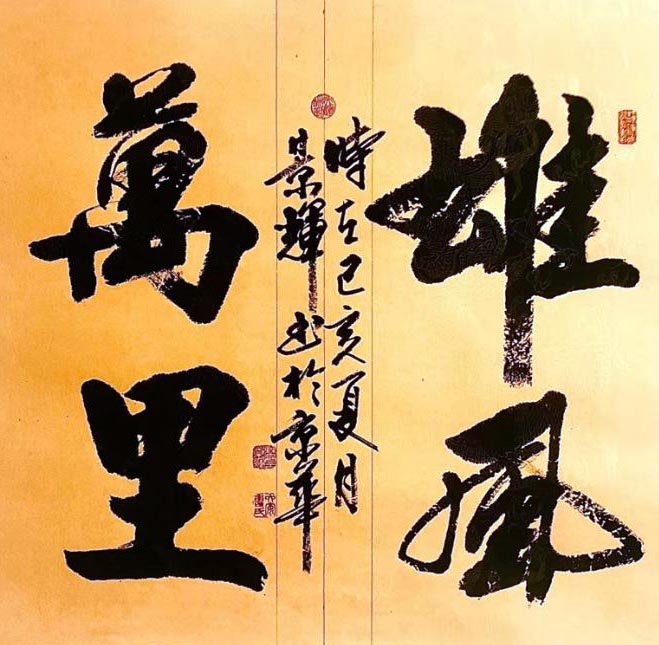 雄風
萬里
時在己亥夏月
景輝書於京華